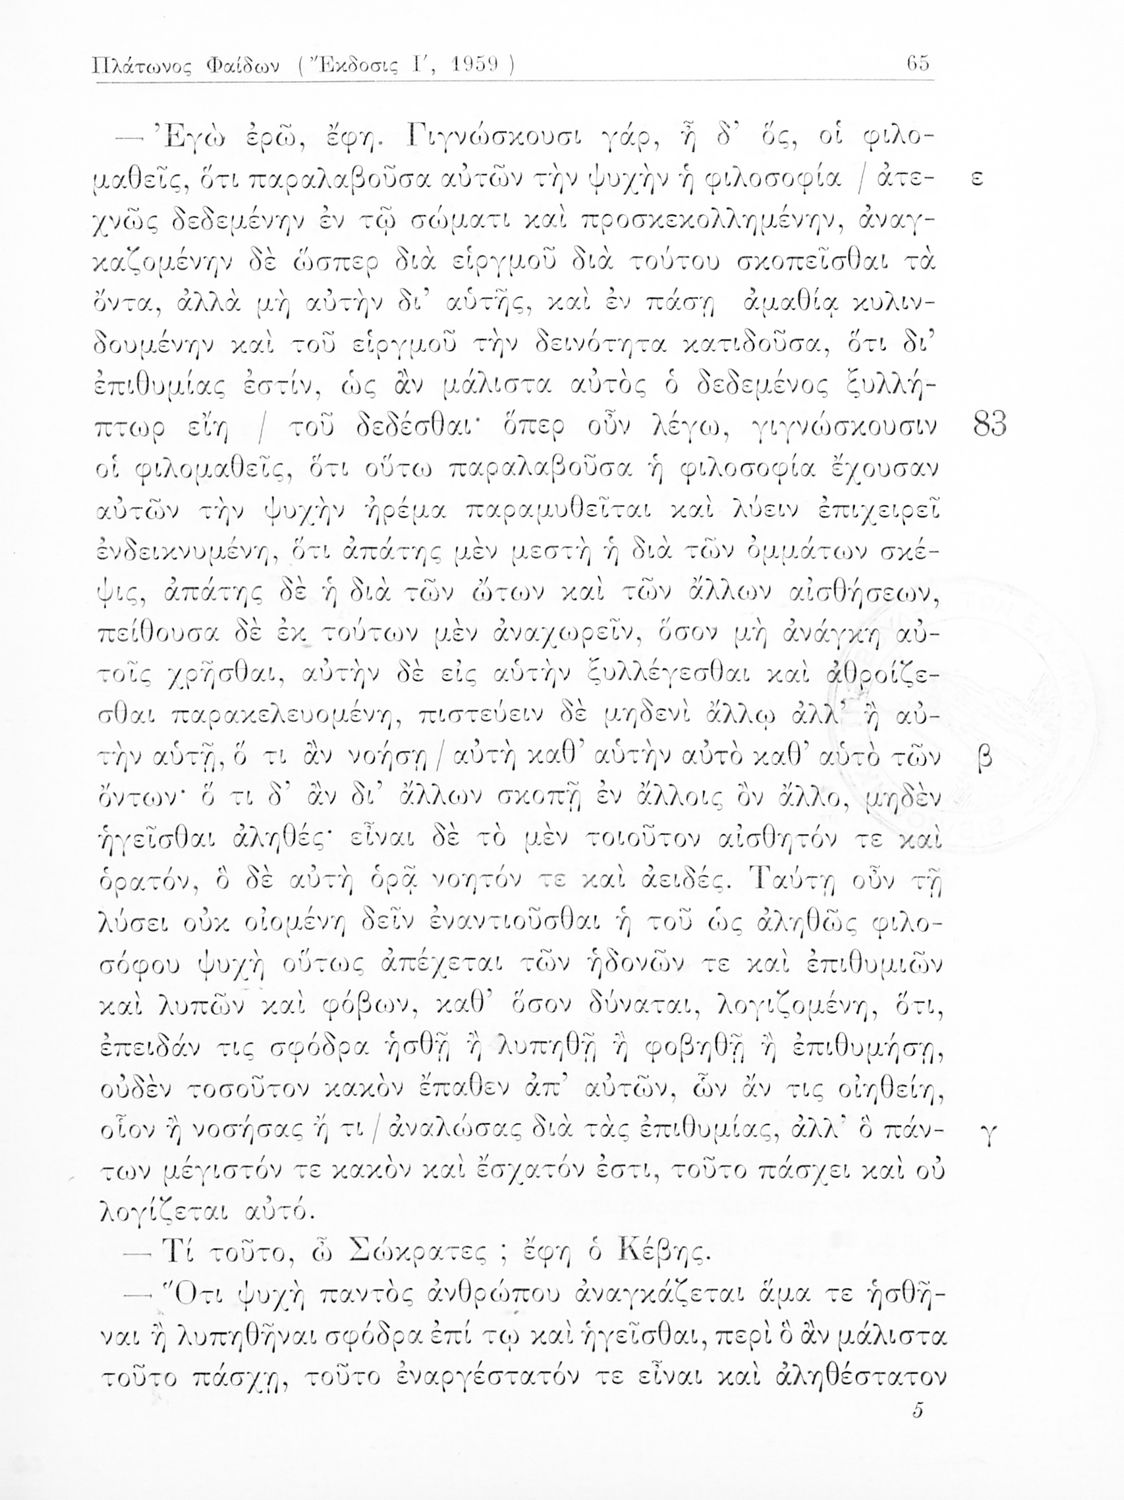 Πλάτωνος Φαίδων ( Ἔκδοσις Ι΄, 1959 ) 65
— Ἐγὼ ἐρῶ, ἔφη. Γιγνώσκουσι γάρ, ἦ δ’ ὅς, οἱ φιλο-
μαθεῖς, ὅτι παραλαβοῦσα αὐτῶν τὴν ψυχὴν ἡ φιλοσοφία / ἀτε- ε
χνῶς δεδεμένην ἐν τῷ σώματι καὶ προσκεκολλημένην, ἀναγ-
καζομένην δὲ ὥσπερ διὰ εἱργμοῦ διὰ τούτου σκοπεῖσθαι τὰ
ὄντα, ἀλλὰ μὴ αὐτὴν δι’ αὑτῆς, καὶ ἐν πάσῃ ἀμαθίᾳ κυλιν-
δουμένην καὶ τοῦ εἱργμοῦ τὴν δεινότητα κατιδοῦσα, ὅτι δι’
ἐπιθυμίας ἐστίν, ὡς ἂν μάλιστα αὐτὸς ὁ δεδεμένος ξυλλή-
πτωρ εἴη / τοῦ δεδέσθαι· ὅπερ οὖν λέγω, γιγνώσκουσιν 83
οἱ φιλομαθεῖς, ὅτι οὕτω παραλαβοῦσα ἡ φιλοσοφία ἔχουσαν
αὐτῶν τὴν ψυχὴν ἠρέμα παραμυθεῖται καὶ λύειν ἐπιχειρεῖ
ἐνδεικνυμένη, ὅτι ἀπάτης μὲν μεστὴ ἡ διὰ τῶν ὀμμάτων σκέ-
ψις, ἀπάτης δὲ ἡ διὰ τῶν ὤτων καὶ τῶν ἄλλων αἰσθήσεων,
πείθουσα δὲ ἐκ τούτων μὲν ἀναχωρεῖν, ὅσον μὴ ἀνάγκη αὐ-
τοῖς χρῆσθαι, αὐτὴν δὲ εἰς αὑτὴν ξυλλέγεσθαι καὶ ἀθροίζε-
σθαι παρακελευομένη, πιστεύειν δὲ μηδενὶ ἄλλῳ ἀλλ’ ἢ αὐ-
τὴν αὑτῇ, ὅ τι ἂν νοήσῃ / αὐτὴ καθ’ αὑτὴν αὐτὸ καθ’ αὑτὸ τῶν β
ὄντων· ὅ τι δ’ ἂν δι’ ἄλλων σκοπῇ ἐν ἄλλοις ὂν ἄλλο, μηδὲν
ἡγεῖσθαι ἀληθές· εἶναι δὲ τὸ μὲν τοιοῦτον αἰσθητόν τε καὶ
ὁρατόν, ὃ δὲ αὐτὴ ὁρᾷ νοητόν τε καὶ ἀειδές. Ταύτῃ οὖν τῇ
λύσει οὐκ οἰομένη δεῖν ἐναντιοῦσθαι ἡ τοῦ ὡς ἀληθῶς φιλο-
σόφου ψυχὴ οὕτως ἀπέχεται τῶν ἡδονῶν τε καὶ ἐπιθυμιῶν
καὶ λυπῶν καὶ φόβων, καθ’ ὅσον δύναται, λογιζομένη, ὅτι,
ἐπειδάν τις σφόδρα ἡσθῇ ἢ λυπηθῇ ἢ φοβηθῇ ἢ ἐπιθυμήσῃ,
οὐδὲν τοσοῦτον κακὸν ἔπαθεν ἀπ’ αὐτῶν, ὧν ἄν τις οἰηθείη,
οἷον ἢ νοσήσας ἤ τι / ἀναλώσας διὰ τὰς ἐπιθυμίας, ἀλλ’ ὃ πάν- γ
των μέγιστόν τε κακὸν καὶ ἔσχατόν ἐστι, τοῦτο πάσχει καὶ οὐ
λογίζεται αὐτό.
— Τί τοῦτο, ὦ Σώκρατες ; ἔφη ὁ Κέβης.
— Ὅτι ψυχὴ παντὸς ἀνθρώπου ἀναγκάζεται ἅμα τε ἡσθῆ-
ναι ἢ λυπηθῆναι σφόδρα ἐπί τῳ καὶ ἡγεῖσθαι, περὶ ὃ ἂν μάλιστα
τοῦτο πάσχῃ, τοῦτο ἐναργέστατόν τε εἶναι καὶ ἀληθέστατον
5